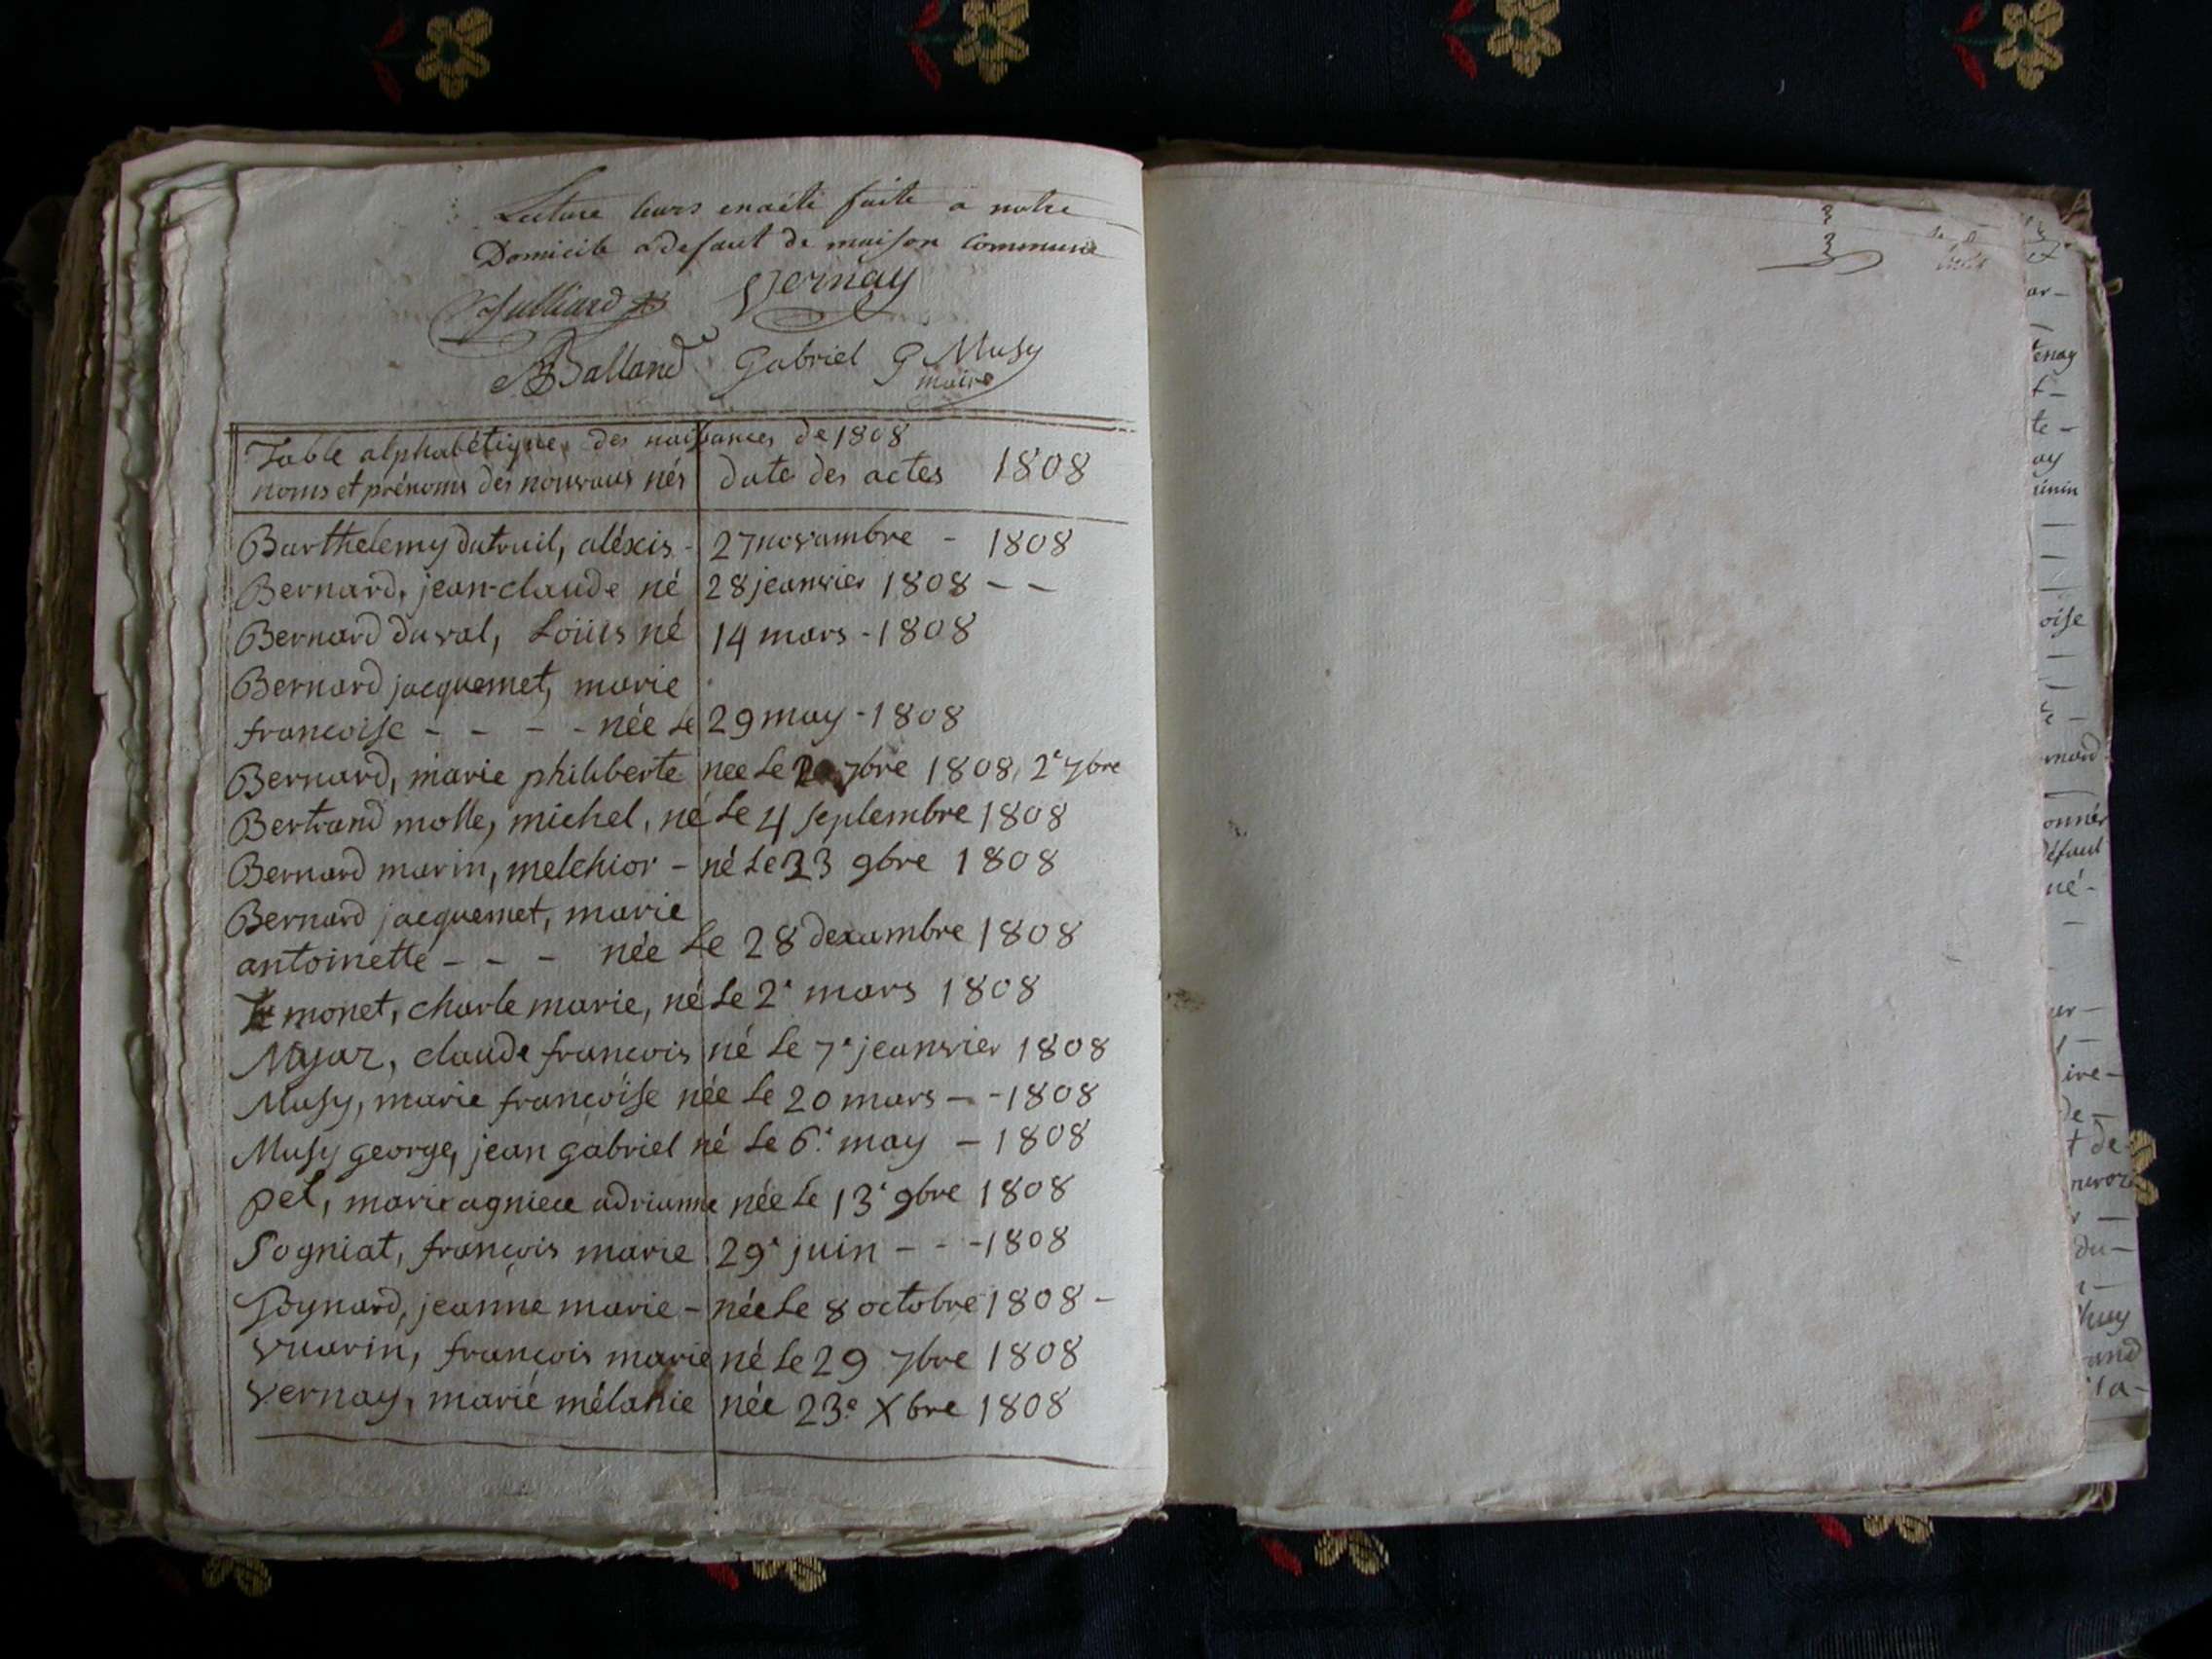 Lecture leurs enaété faite a notre
Domicile a defaut de maison Commune
Julliard Vernay
Balland Gabriel G Musy
maire
Table alphabétique des naissances de 1808
noms et prénoms des nouvaus nés date des actes 1808
Barthelemy dutruil, aléxis - 27 novambre - 1808
Bernard, jean-claude né 28 jeanvier 1808 - -
Bernard duval, Loüis né 14 mars - 1808
Bernard jacquemet, marie
francoise - - - - née Le 29 may - 1808
Bernard, marie philiberte née Le 7bre 1808, 2e 7bre
Bertrand molle, michel, né Le 4 Septembre 1808
Bernard marin, melchior - né Le 23 9bre 1808
Bernard jacquemet, marie
antoinette - - - née Le 28 dexambre 1808
monet, charle marie, né Le 2e mars 1808
Myar, claude francois né Le 7e jeanvier 1808
Musy, marie francoise née Le 20 mars - - 1808
Musy george, jean gabriel né Le 6e may - 1808
pet, marie agniece adrianne née Le 13e 9bre 1808
Sogniat, francois marie 29e juin - - - 1808
Soynard, jeanne marie - née Le 8 octobre 1808 -
vuarin, francois marie né Le 29 7bre 1808
vernay, marie mélanie née 23e Xbre 1808
tenay
oise
rnard
defaut
né -
ire -
t de
du -